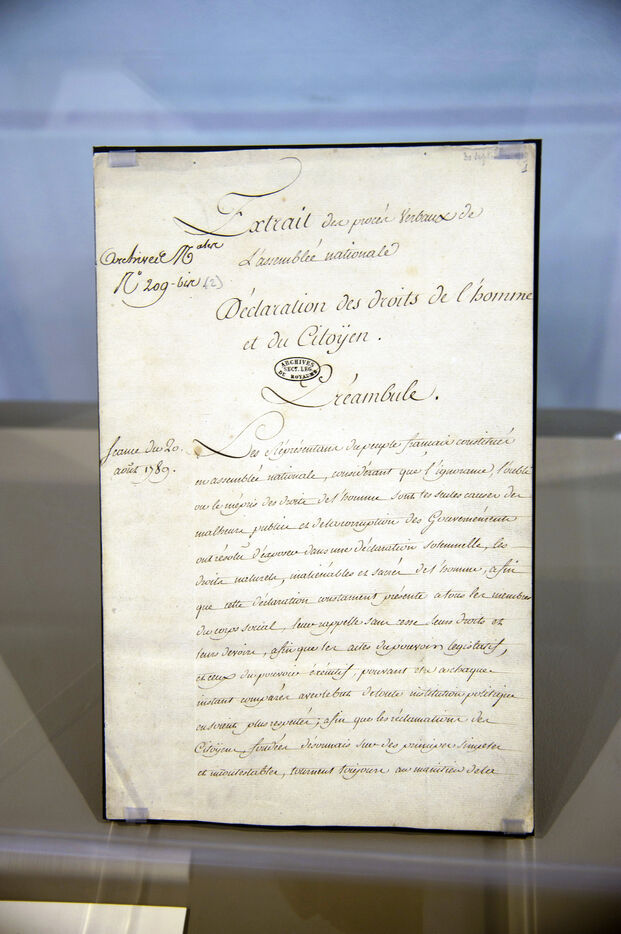 Extrait des procés Verbaux de
L'assemblée nationale
archives
N° 209-bis (2)
Déclaration des droits de l'homme
et du Citoÿen.
ARCHIVES
SECT. LEG.
DU ROYAUME
Préambule.
Seance du 20.
août 1789.
Les Représentans du peuple francais constitués
en assemblée nationale, considérant que l'ignorance, l'oubli
ou le mépris des droits de l'homme sont les seules causes des
malheurs publics et de la corruption des Gouvernéments
ont résolu d'éxposer dans une déclaration solemnelle, les
droits naturels, inaliénables et sacrés de l'homme, afin
que cette déclaration constament presente a tous les membres
du corps social, leur rappelle sans cesse leurs droits et
leurs devoirs, afin que les actes du pouvoir legislatif,
et ceux du pouvoir éxécutif, pouvant être a chaque
instant comparés avec le but de toute institution politique
en soient plus respectés; afin que les réclamations des
Citoÿens, fondées désormais sur des principes simples
et incontestables, tournent toujours au maintien de la
1